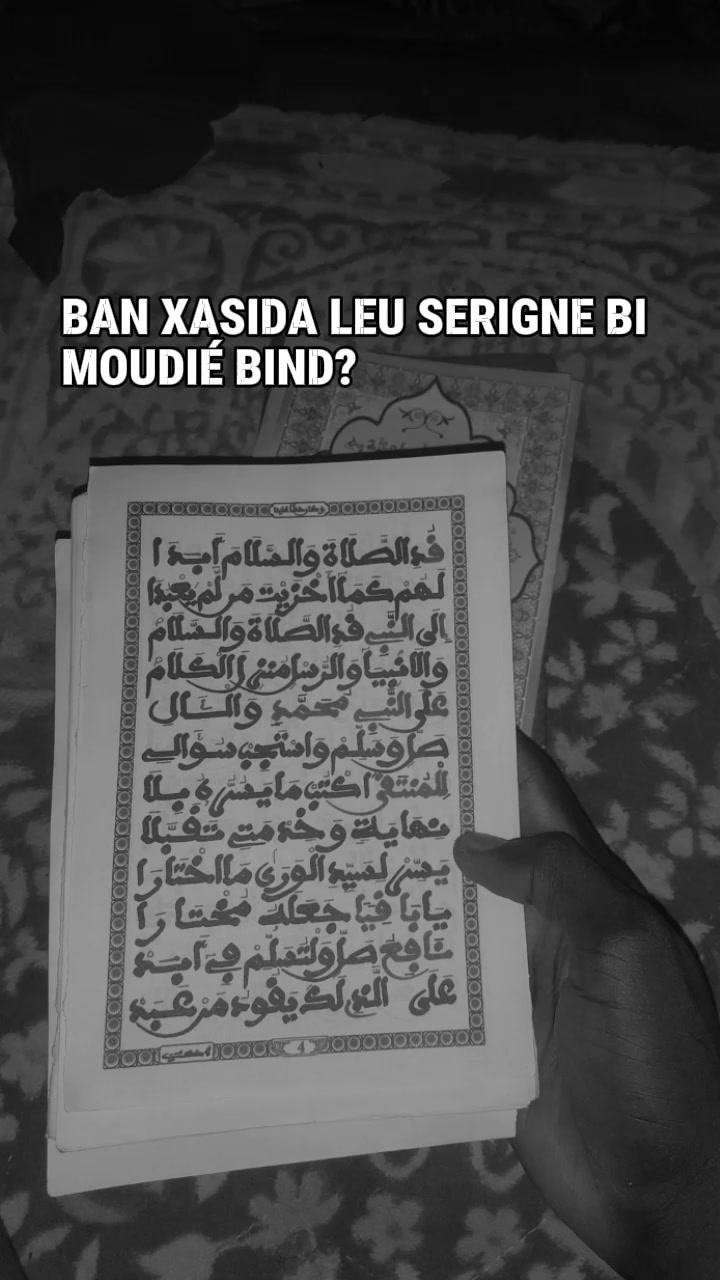 BAN XASIDA LEU SERIGNE BI
MOUDIÉ BIND?
قُدِ الصَّلَاةَ وَالسَّلَامَ أَبَدَا
لَهُمْ كَمَا أَخْزَيْتَ مَن لَّمْ يَعْبُدَا
إِلَى النَّبِي قُدِ الصَّلَاةَ وَالسَّلَامْ
وَالَانْبِيَا وَالرُّسْلِ الْكَلَامْ
عَلَى النَّبِي مُحَمَّدٍ وَالْآلِ
صَلِّ وَسَلِّمْ وَاسْتَجِبْ سُؤَالِي
لِلْمُنْتَقَى اكْتُبْ مَا يَسُرُّهُ بِلَا
نِهَايَةٍ وَخِدْمَتِي تَقَبَّلَا
يَسِّرْ لِسَيِّدِ الْوَرَى مَا اخْتَارَا
يَا بَاقِيًا جَعَلَهُ مُخْتَارَا
يَا نَافِعُ صَلِّ وَلْتُسَلِّمْ فِي أَبَدْ
عَلَى الَّذِي لَكَ يَقُودُ مَنْ عَبَدْ
4